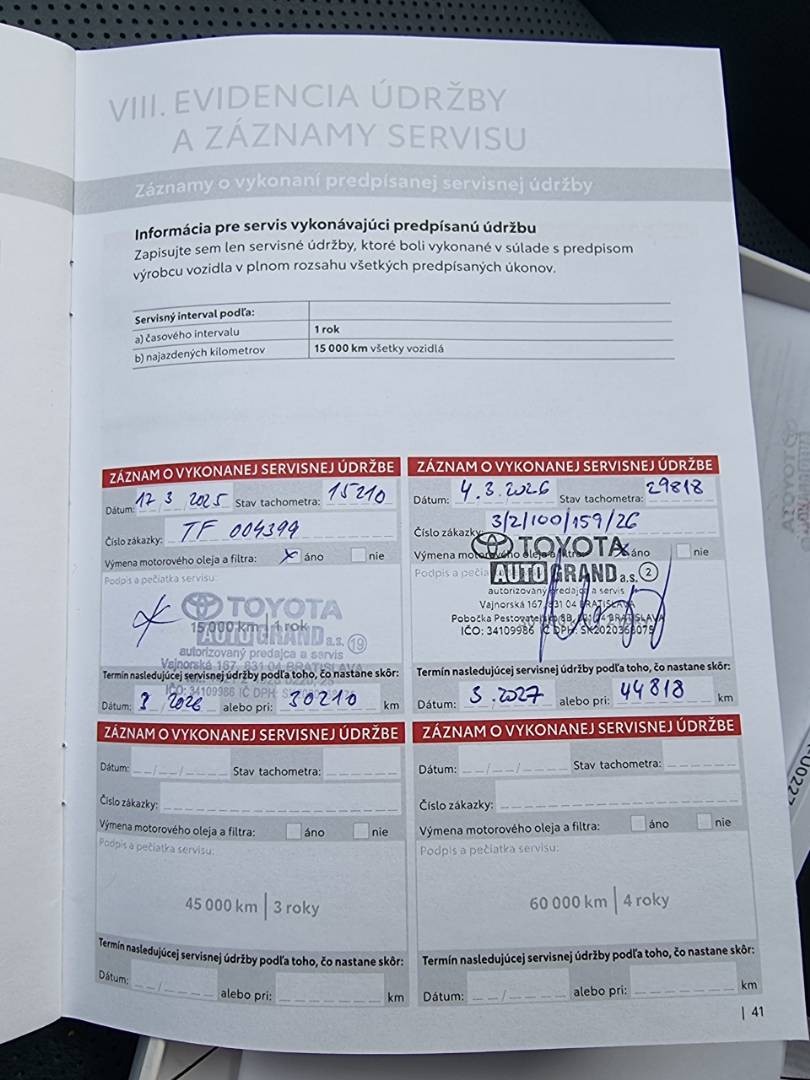 VIII. EVIDENCIA ÚDRŽBY
A ZÁZNAMY SERVISU
Záznamy o vykonaní predpísanej servisnej údržby
Informácia pre servis vykonávajúci predpísanú údržbu
Zapisujte sem len servisné údržby, ktoré boli vykonané v súlade s predpisom
výrobcu vozidla v plnom rozsahu všetkých predpísaných úkonov.
Servisný interval podľa:
a) časového intervalu 1 rok
b) najazdených kilometrov 15 000 km všetky vozidlá
ZÁZNAM O VYKONANEJ SERVISNEJ ÚDRŽBE
Dátum: 12 3 2025 Stav tachometra: 15210
Číslo zákazky: TF 004399
Výmena motorového oleja a filtra: x áno nie
Podpis a pečiatka servisu:
TOYOTA
15 000 km | 1 rok
AUTO GRAND a.s. 19
autorizovaný predajca a servis
Vajnorská 167, 831 04 BRATISLAVA
Termín nasledujúcej servisnej údržby podľa toho, čo nastane skôr:
IČO: 34109986 IČ DPH:
Dátum: 3 2026 alebo pri: 30210 km
ZÁZNAM O VYKONANEJ SERVISNEJ ÚDRŽBE
Dátum: 4.3.2026 Stav tachometra: 29818
Číslo zákazky: 3/2/100/159/26
TOYOTA
Výmena motorového oleja a filtra: x áno nie
Podpis a pečia
AUTO GRAND a.s. 2
autorizovaný predajca a servis
Vajnorská 167, 831 04 BRATISLAVA
Pobočka Pestovateľská BRATISLAVA
IČO: 34109986 IČ DPH: SK2020368075
Termín nasledujúcej servisnej údržby podľa toho, čo nastane skôr:
Dátum: 3.2027 alebo pri: 44818 km
ZÁZNAM O VYKONANEJ SERVISNEJ ÚDRŽBE
Dátum: Stav tachometra:
Číslo zákazky:
Výmena motorového oleja a filtra: áno nie
Podpis a pečiatka servisu:
45 000 km | 3 roky
Termín nasledujúcej servisnej údržby podľa toho, čo nastane skôr:
Dátum: alebo pri: km
ZÁZNAM O VYKONANEJ SERVISNEJ ÚDRŽBE
Dátum: Stav tachometra:
Číslo zákazky:
Výmena motorového oleja a filtra: áno nie
Podpis a pečiatka servisu:
60 000 km | 4 roky
Termín nasledujúcej servisnej údržby podľa toho, čo nastane skôr:
Dátum: alebo pri: km
| 41